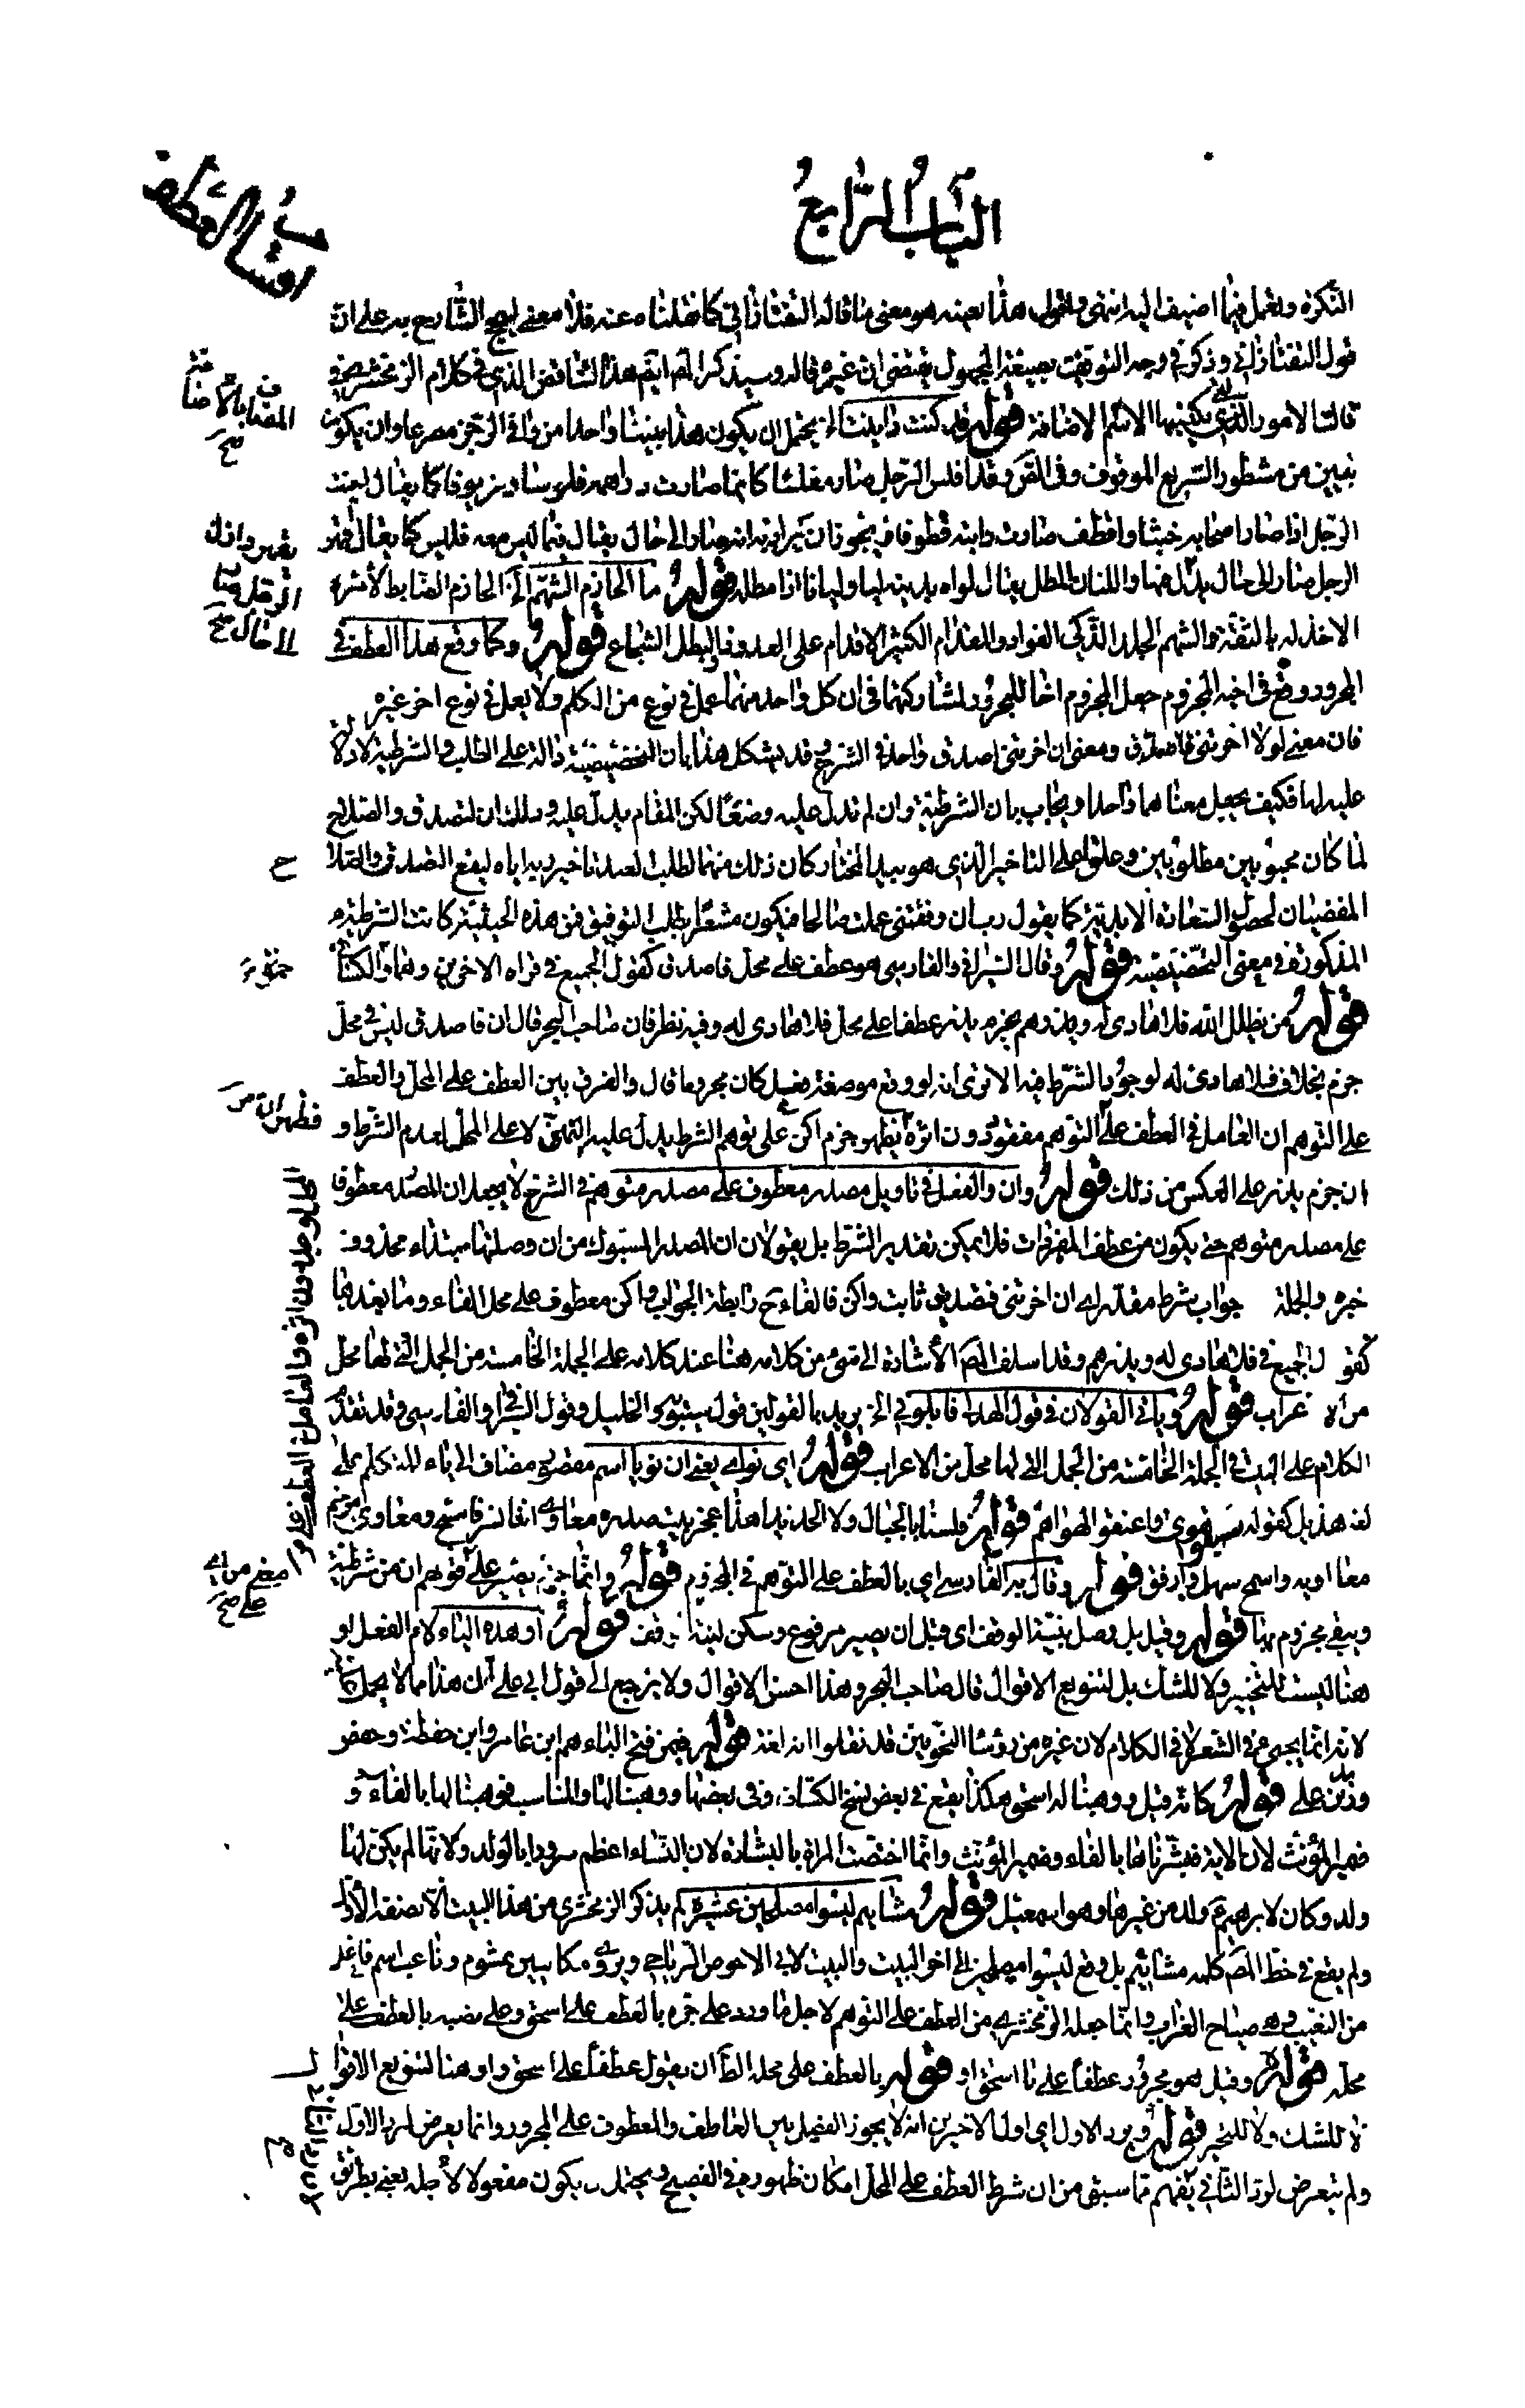 الباب الرابع
اقسام العطف
النكرة وتعمل فيما اضيف اليه انتهى واقول هذا بعينه هو معنى ما قاله التفتازاني كما نقلناه عنه فلا معنى لهج الشارح به على ان
قول التفتازاني وذكر في وجه التوقيت بصيغة المجهول يقتضى ان غيره قاله وسيذكر المص ايضا هذا التناقض الذي في كلام الزمخشري في
ثالث الامور التي يكتسبها الاسم بالاضافة قوله قد كنت داينت الخ يحتمل ان يكون هذا بيتا واحدا من وافي الرجز مصرعا وان يكون
بيتين من مشطور السريع الموقوف وفي القسم وقد افلس الرجل صار مفلسا كانما صارت دراهمه فلوسا وزيوفا كما يقال اخبث
الرجل اذا صار اصحابه خبثا واقطف صارت دابته قطوفا فيجوز ان يراد به انه صار الى حال يقال فيها ليس معه فلس كما يقال اقهر
الرجل صار الى حال يذل فيها والليان المطل يقال لواه بدينه ليا وليانا اذا مطله قوله ما الحازم الشهم الخ الحازم الضابط لأمره
الاخذ له بالثقة والشهم الجلد الذكي الفواد والمقدام الكثير الاقدام على العدو والبطل الشجاع قوله وكما وقع هذا العطف في
المجرور وقع في اخيه المجزوم جعل المجزوم اخا للمجرور لمشاركتهما في ان كل واحد منهما عمل في نوع من الكلم ولا يعمل في نوع اخر غيره
فان معنى لولا اخرتني فاصدق ومعنى ان اخرتني اصدق واحد في الشرح وقد يشكل هذا بان التحضيضية دالة على الطلب والشرطية لا دلالة
عليه لها فكيف يجعل معناهما واحدا ويجاب بان الشرطية وان لم تدل عليه وضعا لكن المقام يدل عليه وذلك ان التصدق والصلاح
لما كان محبوبين مطلوبين وعلقا على التاخير الذي هو بيد المختار كان ذلك منهما لطلب العبد تاخير ربه اياه ليقع التصدق والصلاح
المفضيان لحصول السعادة الابدية كما يقول رب ان وفقتني عملت صالحا فيكون مشعرا بطلب التوفيق فمن هذه الحيثية كانت الشرطية
المذكورة في معنى التحضيضية قوله وقال السيرافي والفارسي هو عطف على محل فاصدق كقول الجميع في قراءة الاخوين وهما والكسائي
قوله من يضلل الله فلا هادى له ويذرهم بجزم يذر عطفا على محل فلا هادى له وفيه نظر فان صاحب البحر قال ان فاصدق ليس في محل
جزم بخلاف فلا هادى له لوجود الشرط فيه الا ترى انه لو وقع موصعه فعل كان مجزوما قال والفرق بين العطف على المحل والعطف
على التوهم ان العامل في العطف على التوهم مفقود دون اثره فظهر جزم اكن على توهم الشرط يدل عليه التمنى لا على المحل لعدم الشرط و
ان جزم يذر على العكس من ذلك قوله وان والفعل في تاويل مصدر معطوف على مصدر متوهم في الشرح لا يجعل ان المصدر معطوفا
على مصدر متوهم حتى يكون من عطف المفردات فلا يمكن تقدير الشرط بل يقولان ان المصدر المسبوك من ان وصلتها مبتداء محذوف
خبره والجملة جواب شرط مقدر اي ان اخرتني فتصدقي ثابت واكن فالفاء ح رابطة الجواب واكن معطوف على محل الفاء وما بعدها
كقول الجميع في فلا هادى له ويذرهم وقد اسلف المص الأشارة الى شئ من كلامه هنا عند كلامه على الجملة الخامسة من الجمل التي لها محل
من الاعراب قوله وياتي القولان في قول الهذلي فابلوني الخ يريد بالقولين قول سيبويه والخليل وقول السيرافي والفارسي وقد تقدم
الكلام على البيت في الجملة الخامسة من الجمل التي لها محل من الاعراب قوله اي نواي يعني ان نويا اسم مقصور مضاف الى ياء المتكلم على
لغة هذيل كقوله سبقوا هوى واعنقوا لهواهم قوله فلسنا بالجبال ولا الحديدا هذا عجز بيت صدره معاوي اننا بشر فاسجح ومعاوي مرخم
معاويه واسجح سهل وارفق قوله وقال به الفارسي اي بالعطف على التوهم في المجزوم قوله وانما جزم يصبر على توهم ان من شرطية
ويبقى مجزوم بها قوله وقيل بل وصل بنية الوقف اى قبل ان يصير مرفوع وسكن لنية الوقف قوله أو هذه الياء لام الفعل او
هنا ليست للتخيير ولا للشك بل لتنويع الاقوال قال صاحب البحر وهذا احسن الاقوال ولا يرجع الى قول ابي على لان هذا مما لا يحمل عليه
لانه انما يجيئ في الشعر لا في الكلام لان غيره من رؤسا النحويين قد نقلوا انه لغة قوله فيمن فتح الباء هم ابن عامر وحمزة وحفص
وزيد بن علي قوله كانه قيل ووهبنا له اسحق هكذا يقع في بعض نسخ الكتاب، وفي بعضها ووهبنا لها والمناسب فوهبنا لها بالفاء و
ضمير المؤنث لان الاية فبشرناها بالفاء وضمير المؤنث وانما اختصت المراة بالبشارة لان النساء اعظم سرورا بالولد ولانها لم يكن لها
ولد وكان لابرهيم ع ولد من غيرها وهو اسمعيل قوله مشايم ليسوا مصلحين عشيرة لم يذكر الزمخشري من هذا البيت الا نصفه الأول
ولم يقع في خط المص كلمة مشائيم بل وقع ليسوا مصلحين الى اخر البيت والبيت لابي الاحوص الرياحي ويروى مكايبين مشوم وناعب اسم فاعل
من النعيب وهو صياح الغراب وانما جعله الزمخشري من العطف على التوهم لاجل ما ورد على جره بالعطف على اسحق وعلى نصبه بالعطف على
محله قوله وقيل هو مجرور عطفا على با اسحق او قوله بالعطف على محله الظ ان يقول عطفا على اسحق واو هنا لتنويع الاقوال
لا للشك ولا للتخيير قوله ويرد الاول اي اول الاخيرين انه لا يجوز الفصل بين العاطف والمعطوف على المجرور وانما يعرض لرد الاول
ولم يتعرض لرد الثاني لفهم مما سبق من ان شرط العطف على المحل امكان ظهوره في الفصيح ويحتمل ان يكون مفعولا لأجله يعني بطريق
المضاف بالاضافة
صح
يقهر واذل
الرجل صار
الى حال صح
ح
حمزة
فظهر ان